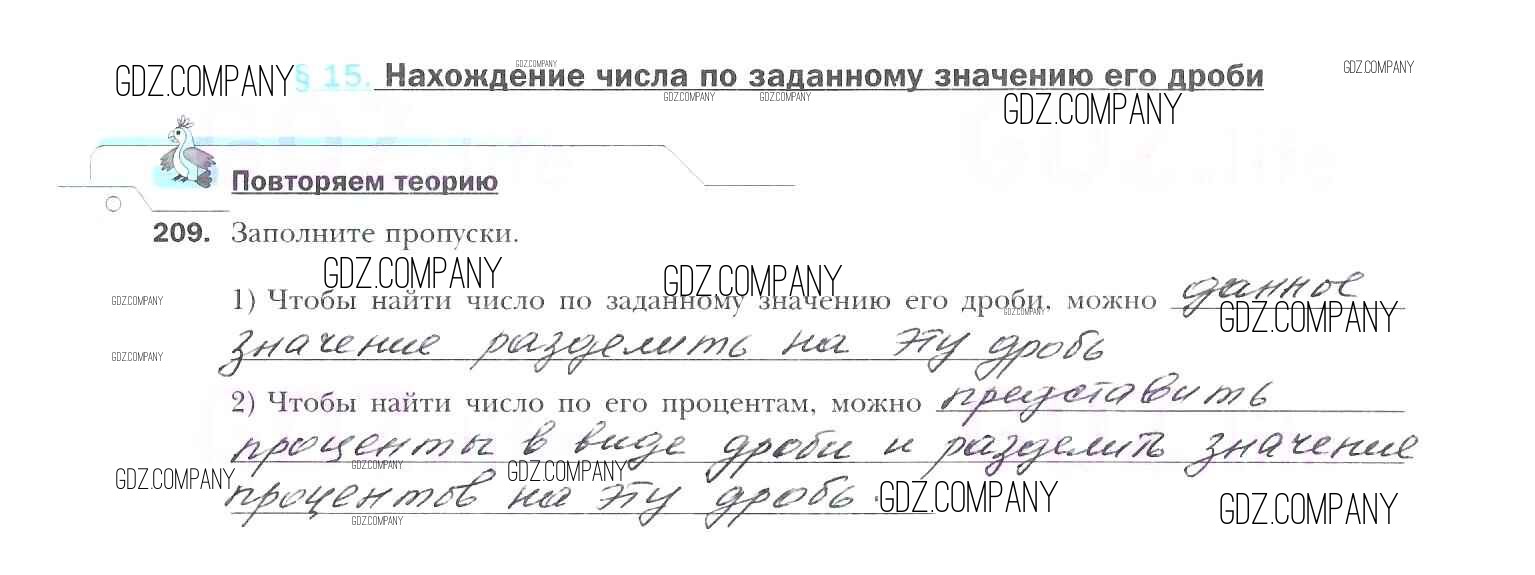 GDZ.COMPANY
§ 15. Нахождение числа по заданному значению его дроби
GDZ.COMPANY
GDZ.COMPANY
GDZ.COMPANY
GDZ.COMPANY
GDZ.COMPANY
Повторяем теорию
209. Заполните пропуски.
GDZ.COMPANY
GDZ.COMPANY
GDZ.COMPANY
1) Чтобы найти число по заданному значению его дроби, можно данное
GDZ.COMPANY
GDZ.COMPANY
значение разделить на эту дробь
GDZ.COMPANY
2) Чтобы найти число по его процентам, можно представить
проценты в виде дроби и разделить значение
GDZ.COMPANY
GDZ.COMPANY
GDZ.COMPANY
процентов на эту дробь.
GDZ.COMPANY
GDZ.COMPANY
GDZ.COMPANY